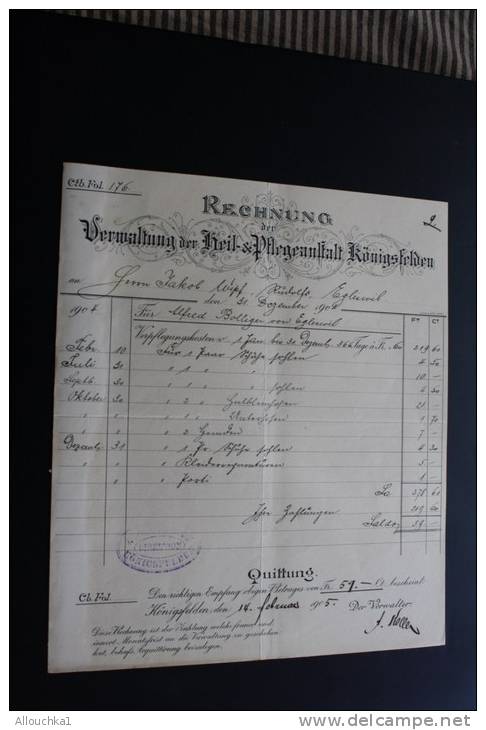 Ctb. Fol. 176.
RECHNUNG
der
Verwaltung der Heil- & Pflegeanstalt Königsfelden
an Herrn Jakob Rudolfs, Egliswil
den 31 Dezember 1904
1904 Für Alfred Bolliger von Egliswil
Verpflegungskosten v. 1 Jan. bis 31 Dezemb. 366 Tage à Fr. 219 60
Febr. 10 Für 1 Paar Schuhe sohlen 4 50
Juli 1 10 —
Septb. 1 sohlen 4
Oktober 2 21
1 1 70
2 Hemden 7 —
Dezemb. 31 1 Pr Schuhe sohlen 4
Kleiderreparaturen 5 —
Porti 1 —
Sa 278 60
Ihre Zahlungen 219 60
Saldo 59 —
KÖNIGSFELDEN
Quittung.
Cb. Fol. Den richtigen Empfang obigen Betrages von Fr. 59.— Ct. bescheint
Königsfelden, den 14. Februar 1905. Der Verwalter:
Diese Rechnung ist der Zahlung welche franco und
innert Monatsfrist an die Verwaltung zu geschehen
hat, behufs Acquittirung beizulegen.
Allouchka1
http://www.delcampe.net